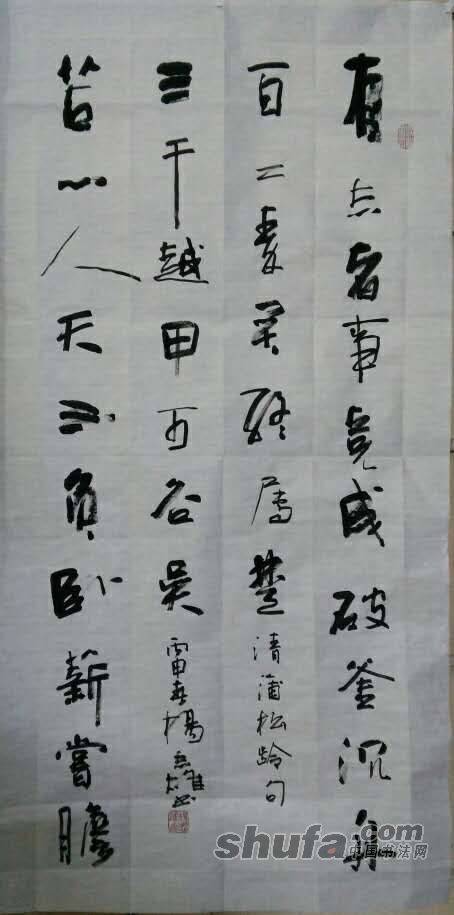 有志者事竟成破釜沉舟
百二秦关终属楚
清蒲松龄句
苦心人天不負卧薪嘗膽
三千越甲可吞吳
丙申春楊志雄书
shufa.com
中国书法网